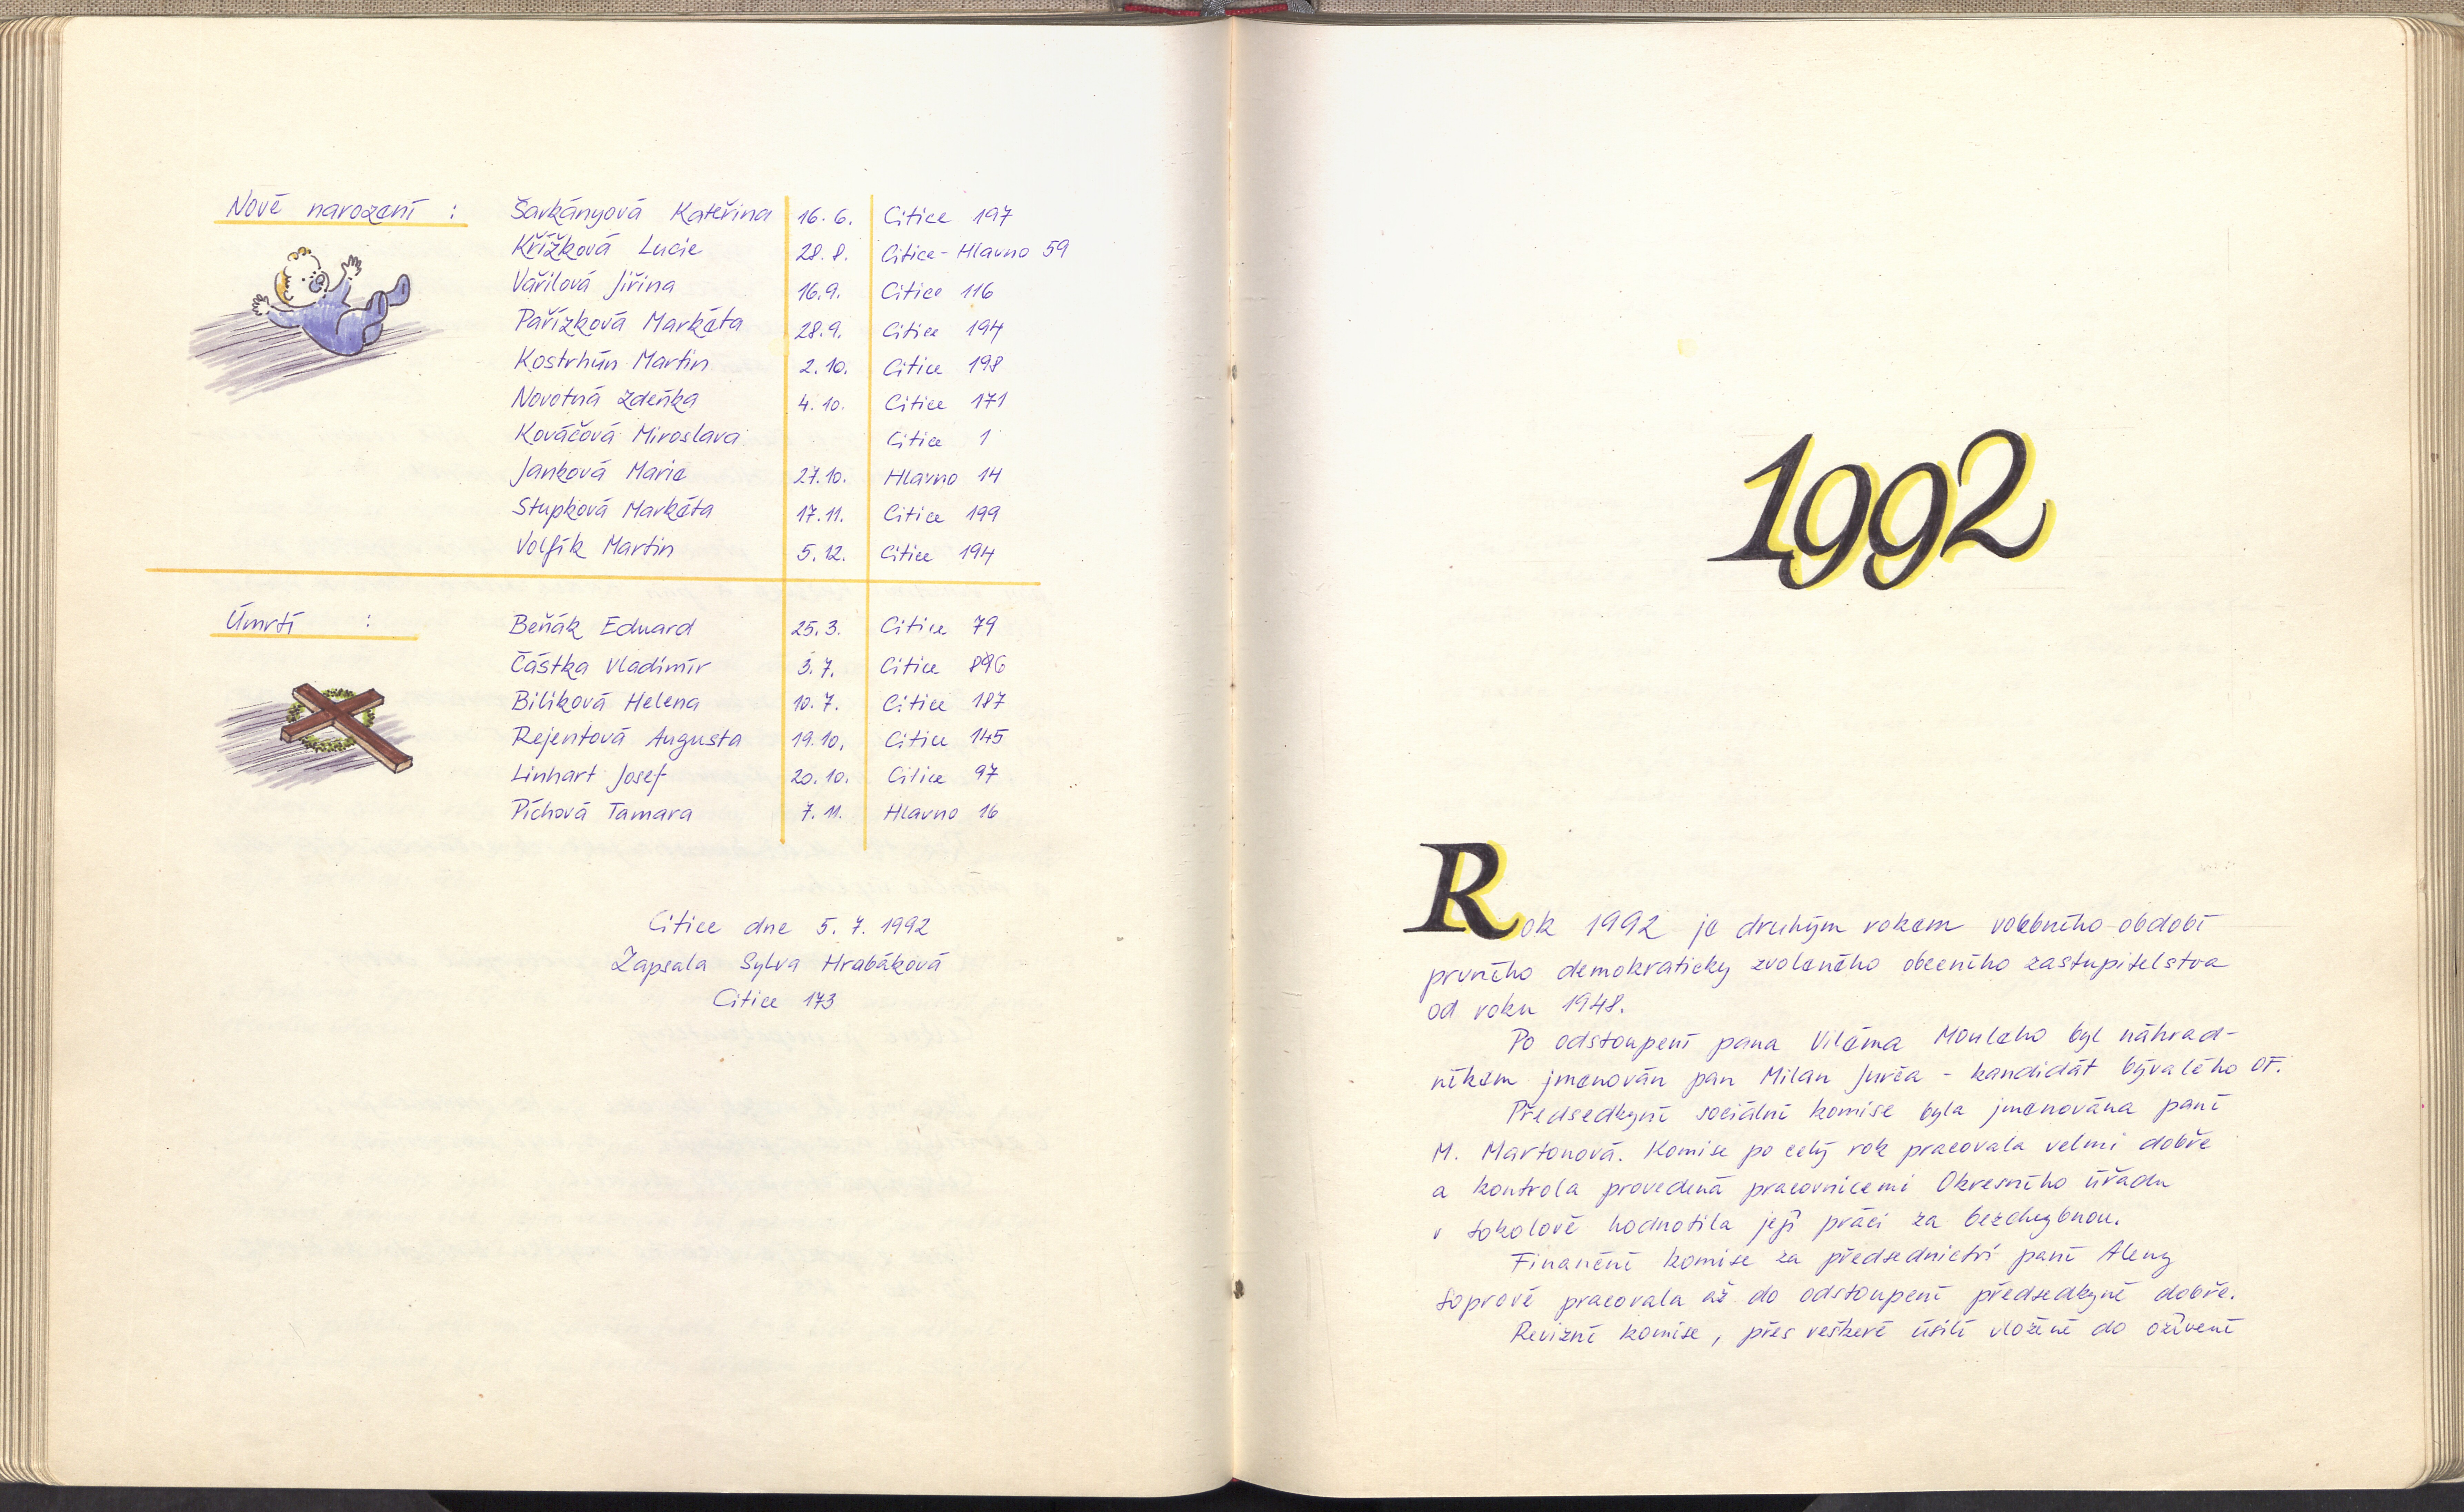 Nově narození :
Šarkányová Kateřina 16.6. Citice 197
Křížková Lucie 28.8. Citice - Hlavno 59
Vařilová Jiřina 16.9. Citice 116
Pařízková Markéta 28.9. Citice 194
Kostrhún Martin 2.10. Citice 198
Novotná Zdeňka 4.10. Citice 171
Kováčová Miroslava Citice 1
Janková Marie 27.10. Hlavno 14
Stupková Markéta 17.11. Citice 199
Volfík Martin 5.12. Citice 194
Úmrtí :
Beňák Eduard 25.3. Citice 79
Částka Vladimír 3.7. Citice
Bilíková Helena 10.7. Citice 187
Rejentová Augusta 19.10. Citice 145
Linhart Josef 20.10. Citice 97
Píchová Tamara 7.11. Hlavno 16
Citice dne 5. 7. 1992
Zapsala Sylva Hrabáková
Citice 173
1992
Rok 1992 je druhým rokem volebního období
prvního demokraticky zvoleného obecního zastupitelstva
od roku 1948.
Po odstoupení pana Viléma Mouleho byl náhrad-
níkem jmenován pan Milan Jurča - kandidát bývalého OF.
Předsedkyní sociální komise byla jmenována paní
M. Martonová. Komise po celý rok pracovala velmi dobře
a kontrola provedená pracovnicemi Okresního úřadu
v Sokolově hodnotila její práci za bezchybnou.
Finanční komise za předsednictví paní Aleny
Soprové pracovala až do odstoupení předsedkyně dobře.
Revizní komise, přes veškeré úsilí vložené do oživení